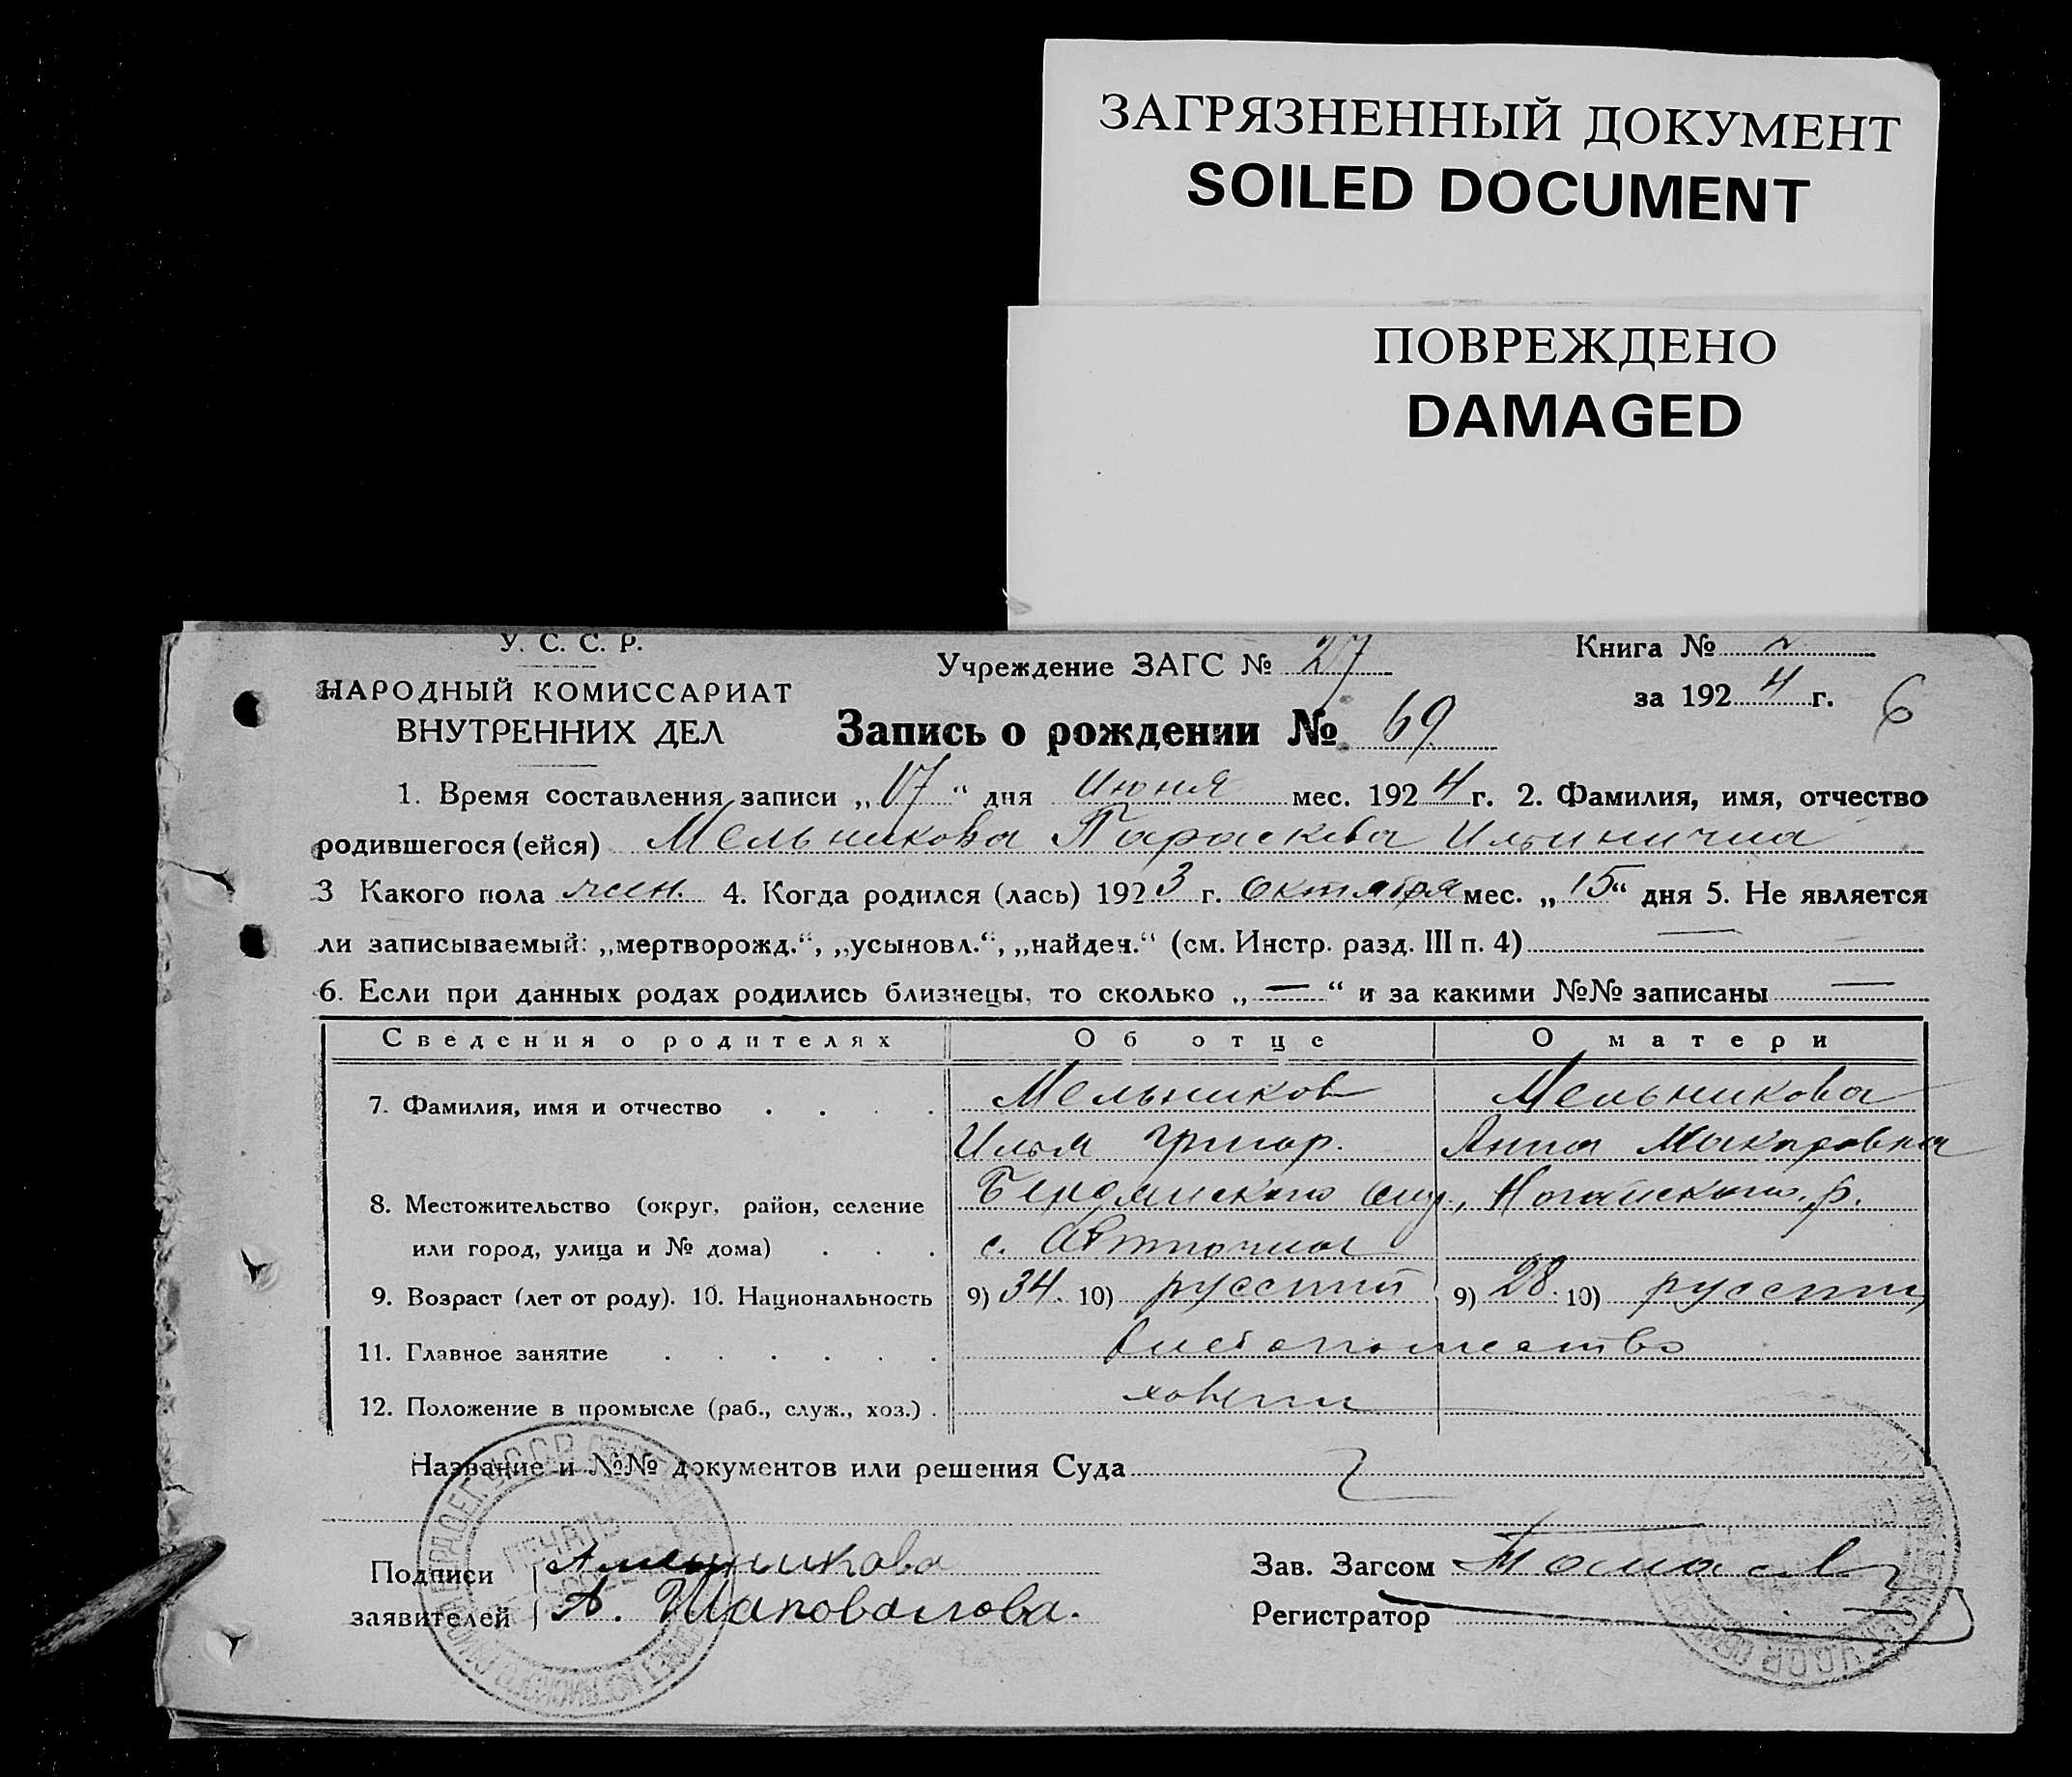 ЗАГРЯЗНЕННЫЙ ДОКУМЕНТ
SOILED DOCUMENT
ПОВРЕЖДЕНО
DAMAGED
У. С. С. Р.
НАРОДНЫЙ КОМИССАРИАТ
ВНУТРЕННИХ ДЕЛ
Учреждение ЗАГС № 27
Книга № 2
за 1924 г.
6
Запись о рождении № 69
1. Время составления записи „17“ дня Июня мес. 1924 г. 2. Фамилия, имя, отчество
родившегося (ейся) Мельникова Параскева Ильинична
3 Какого пола жен. 4. Когда родился (лась) 1923 г. октября мес. „15“ дня 5. Не является
ли записываемый: „мертворожд.“, „усыновл.“, „найден.“ (см. Инстр. разд. III п. 4) —
6. Если при данных родах родились близнецы, то сколько „—“ и за какими №№ записаны —
Сведения о родителях Об отце О матери
7. Фамилия, имя и отчество . . . . Мельников Мельникова
Илья Григор. Анна Макаровна
8. Местожительство (округ, район, селение Бердянского окр., Ногайского р.
или город, улица и № дома) . . . с.
9. Возраст (лет от роду). 10. Национальность 9) 34. 10) русский 9) 28. 10) русский
11. Главное занятие . . . . . . хлебопашество
12. Положение в промысле (раб., служ., хоз.) .
Название и №№ документов или решения Суда
ПЕЧАТЬ
Подписи Амельникова
заявителей А. Шаповалова.
Зав. Загсом
Регистратор